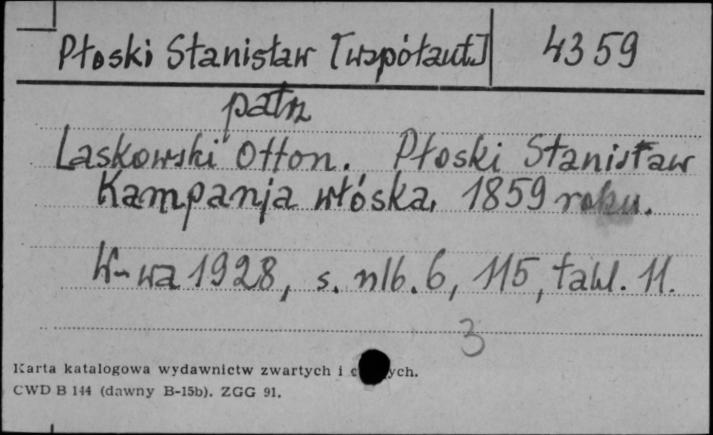 Płoski Stanisław [współaut.] 4359
patrz
Laskowski Otton. Płoski Stanisław
Kampanja włóska, 1859 roku.
W-wa 1928, s. nlb. 6, 115, tabl. 11.
3
Karta katalogowa wydawnictw zwartych i
CWD B 144 (dawny B-15b). ZGG 91.